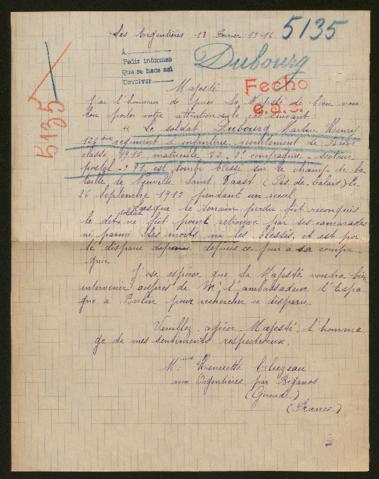 Les Argentières 13 Février 1916
5135
A
Pedir informes
Que se hace acá
Devolver
Dubourg
Fecho
5135
Majesté
J'ai l'honneur de prier Sa Majesté de bien vou
loir porter votre attention sur le suivant.
Le soldat Dubourg Martin Henri
régiment d'infanterie, recrutement de
classe 1915 matricule compagnie, secteur
postal 71 est tombé blessé sur le champ de ba
taille de Neuville Saint Vaast (Pas de Calais) le
26 Septembre 1915 pendant un recul
Lorsque le terrain perdu fut reconquis
le dit soldat ne fut point retrouvé par ses camarades
ni parmi les morts, ni les blessés, et est por
té disparu depuis ce jour à sa compa
gnie.
J'ose espérer que Sa Majesté voudra bien
intervenir auprès de Mr l'ambassadeur d'Espa
gne à Berlin pour rechercher ce disparu.
Veuillez agréer Majesté l'homma
ge de mes sentiments respectueux.
Mme Henriette Cluzeau
aux Argentières par Biganos
(Gironde)
(France)